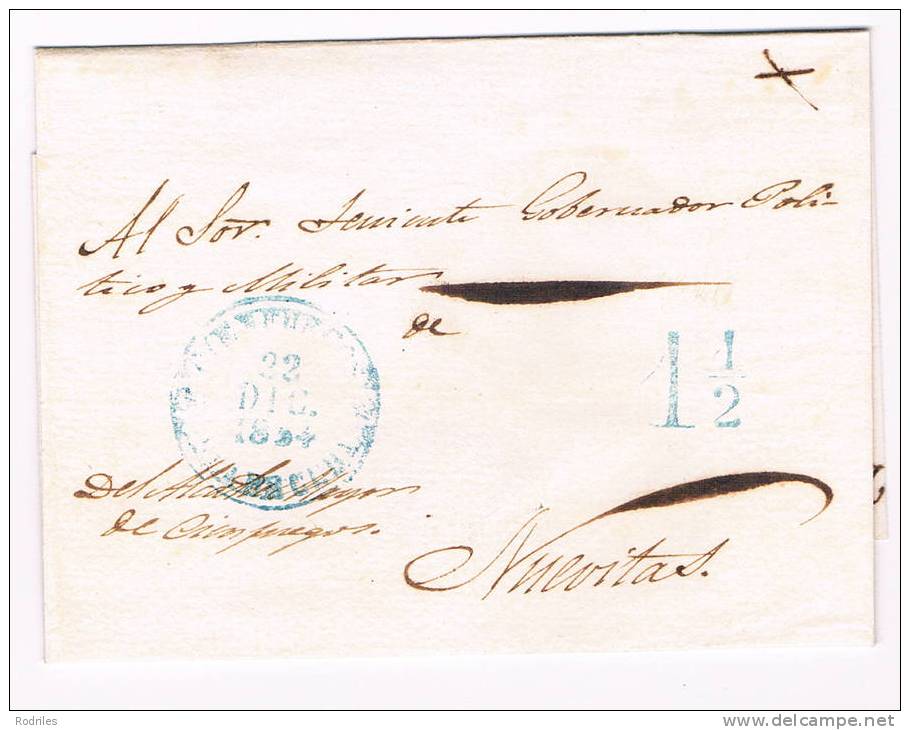 Al Sor. Teniente Gobernador Poli-
tico y Militar
de
CIENFUEGOS
22
DIC.
1854
1 1/2
Del Alcalde Mayor
de Cienfuegos.
Nuevitas.
Rodriles
www.delcampe.net